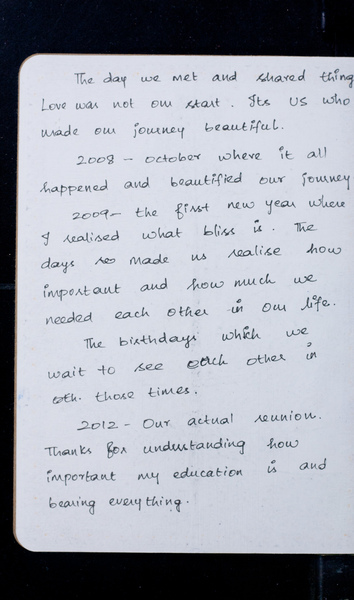 The day we met and shared thing
Love was not our start. Its US who
made our journey beautiful.
2008 - october where it all
happened and beautified our journey
2009- the first new year where
I realised what bliss is. The
days so made us realise how
important and how much we
needed each other in our life.
The birthdays which we
wait to see each other in
those times.
2012 - Our actual reunion.
Thanks for understanding how
important my education is and
bearing everything.